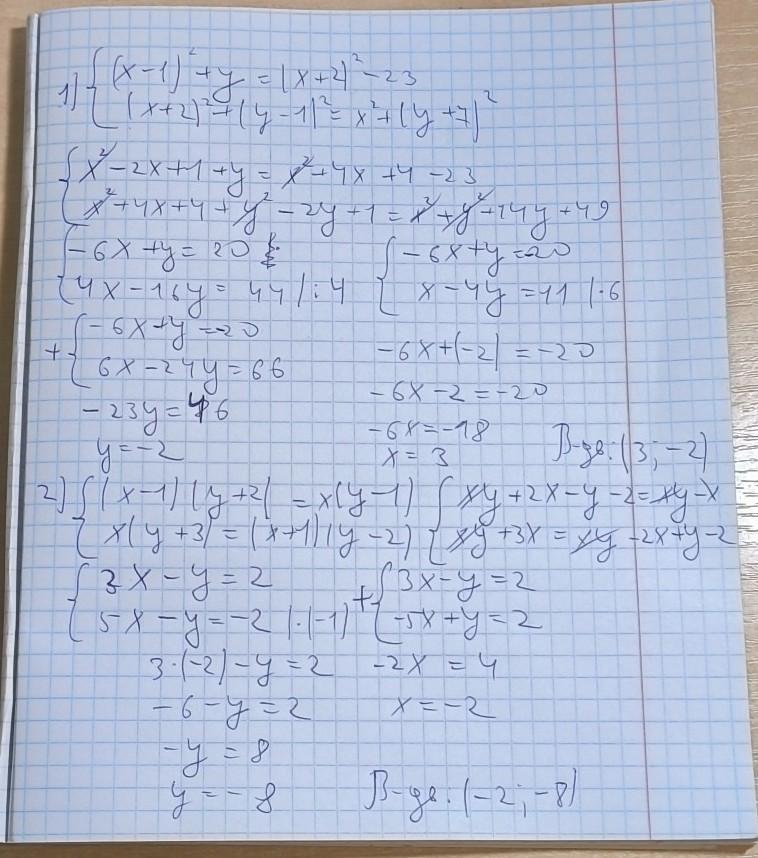 1) { (x-1)² + y = (x+2)² - 23
{ (x+2)² + (y-1)² = x² + (y+7)²
{ x² - 2x + 1 + y = x² + 4x + 4 - 23
{ x² + 4x + 4 + y² - 2y + 1 = x² + y² + 14y + 49
{ -6x + y = 20 { -6x + y = -20
{ 4x - 16y = 44 | :4 { x - 4y = 11 | ·6
+ { -6x + y = -20
{ 6x - 24y = 66 -6x + (-2) = -20
-23y = 46 -6x - 2 = -20
y = -2 -6x = -18
x = 3 В-дь: (3; -2)
2) { (x-1)(y+2) = x(y-1) { xy + 2x - y - 2 = xy - x
{ x(y+3) = (x+1)(y-2) { xy + 3x = xy - 2x + y - 2
{ 3x - y = 2 + { 3x - y = 2
{ 5x - y = -2 | ·(-1) { -5x + y = 2
3·(-2) - y = 2 -2x = 4
-6 - y = 2 x = -2
-y = 8
y = -8 В-дь: (-2; -8)